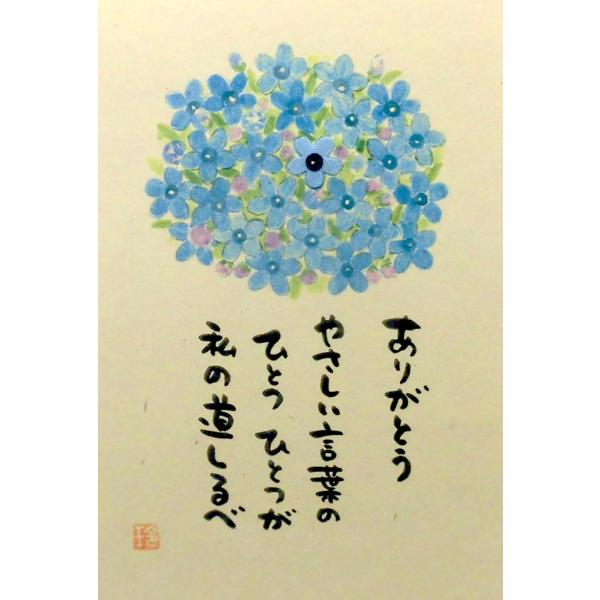 ありがとう
やさしい言葉の
ひとつ ひとつが
私の道しるべ
玲